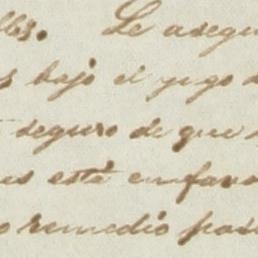 lles. Le asegu
s bajo el yugo d
seguro de que s
es está en favo
o remedio para